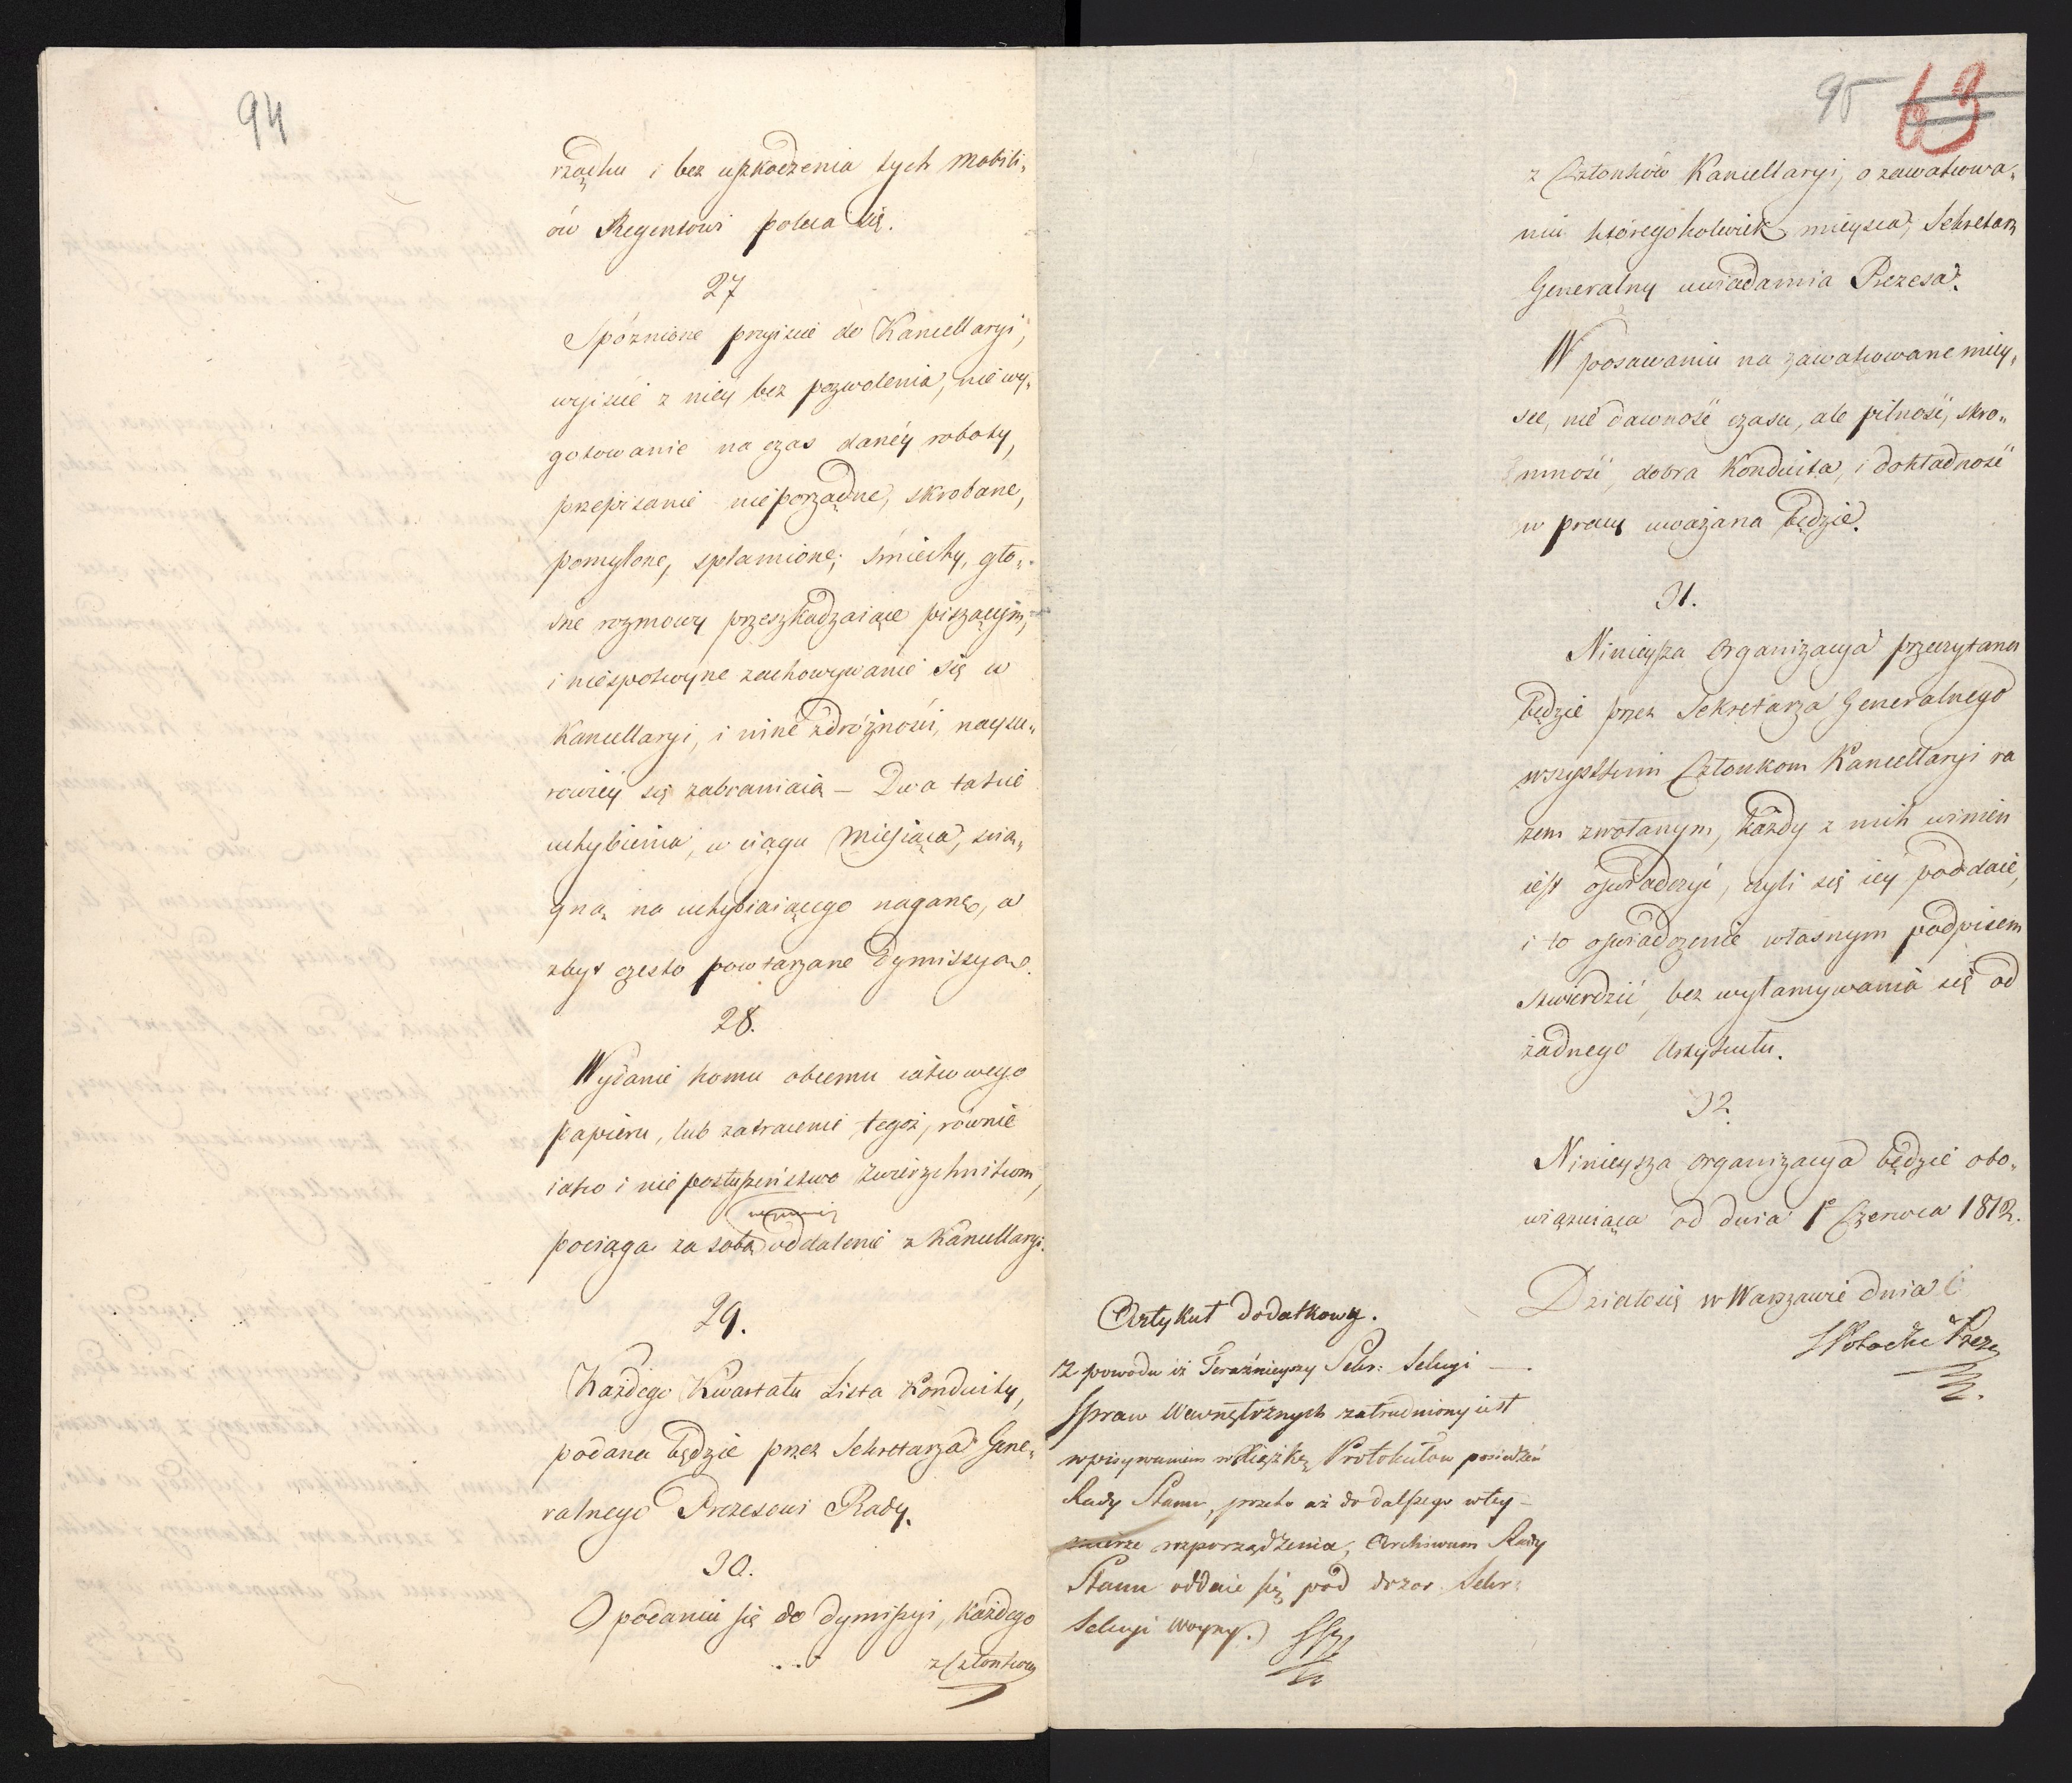 94
rządku i bez uszkodzenia tych Mobili„
ów Regentowi poleca się.
27
Spóznione przyiscie do Kancellaryi,
wyiscie z niey bez pozwolenia, nie wy„
gotowanie na czas danéy roboty,
przepisanie nieporządne, skrobane,
pomylone, splamione; śmiechy, gło„
śne rozmowy przeszkadzaiące piszącym,
i niespokoyne zachowywanie się w
Kancellaryi, i inne zdrożności, naysu„
rowiéy się zabraniaią — Dwa takie
uchybienia, w ciągu Miesiąca, ścią„
gną na uchybiaiącego naganę, a
zbyt często powtarzane Dymissyą.
28.
Wydanie komu obcemu iakowego
papieru, lub zatracenie tegoż, równie
iako i nie posłuszeństwo Zwierzchnikom,
pociąga za sobą oddalenie z Kancellaryi.
29.
Każdego Kwartału Lista Konduity,
podana będzie przez Sekretarza Gene„
ralnego Prezesowi Rady.
30.
O podaniu się do Dymissyi, każdego
z Członków
95 63
z Członków Kancellaryi, o zawakowa„
niu któregokolwiek mieysca, Sekretarz
Generalny uwiadamia Prezesa.
W posuwaniu na zawakowane miey„
sce, nie dawność czasu, ale pilność, skro„
mność, dobra Konduita, i dokładność
w pracy uważana będzie.
31.
Ninieysza Organizacya przeczytana
będzie przez Sekretarza Generalnego
wszystkim Członkom Kancellaryi ra
zem zwołanym, każdy z nich winien
iest oświadczyć, czyli się iéy poddaie,
i to oświadczenie własnym podpisem
stwierdzić, bez wyłamywania się od
żadnego Artykułu.
32.
Ninieysza organizacya będzie obo„
wiązuiąca od dnia 1º Czerwca 1812.
Działo się w Warszawie dnia 6
S Potocki Preze
Artykuł dodatkowy.
Z powodu iż Teraźnieyszy Sekr: Sekcyi —
Spraw Wewnętrznych zatrudniony iest
wpisywaniem w Xiążkę Protokułów posiedzeń
Rady Stanu, przeto aż do dalszego w tey
mierze rozporządzenia, Archiwum Rady
Stanu oddaie się pod dozor Sekr:
Sekcyi Woyny.